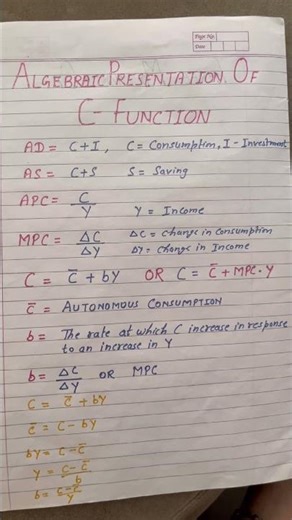 Page No.
Date
ALGEBRAIC PRESENTATION OF
C-FUNCTION
AD = C+I, C = Consumption, I - Investment
AS = C+S S = Saving
APC = C/Y Y = Income
MPC = ΔC/ΔY ΔC = Change in Consumption
ΔY = Change in Income
C = C̅ + bY OR C = C̅ + MPC·Y
C̅ = AUTONOMOUS CONSUMPTION
b = The rate at which C increase in response
to an increase in Y
b = ΔC/ΔY OR MPC
C = C̅ + bY
C̅ = C - bY
bY = C - C̅
Y = C - C̅/b
b = C - C̅/Y